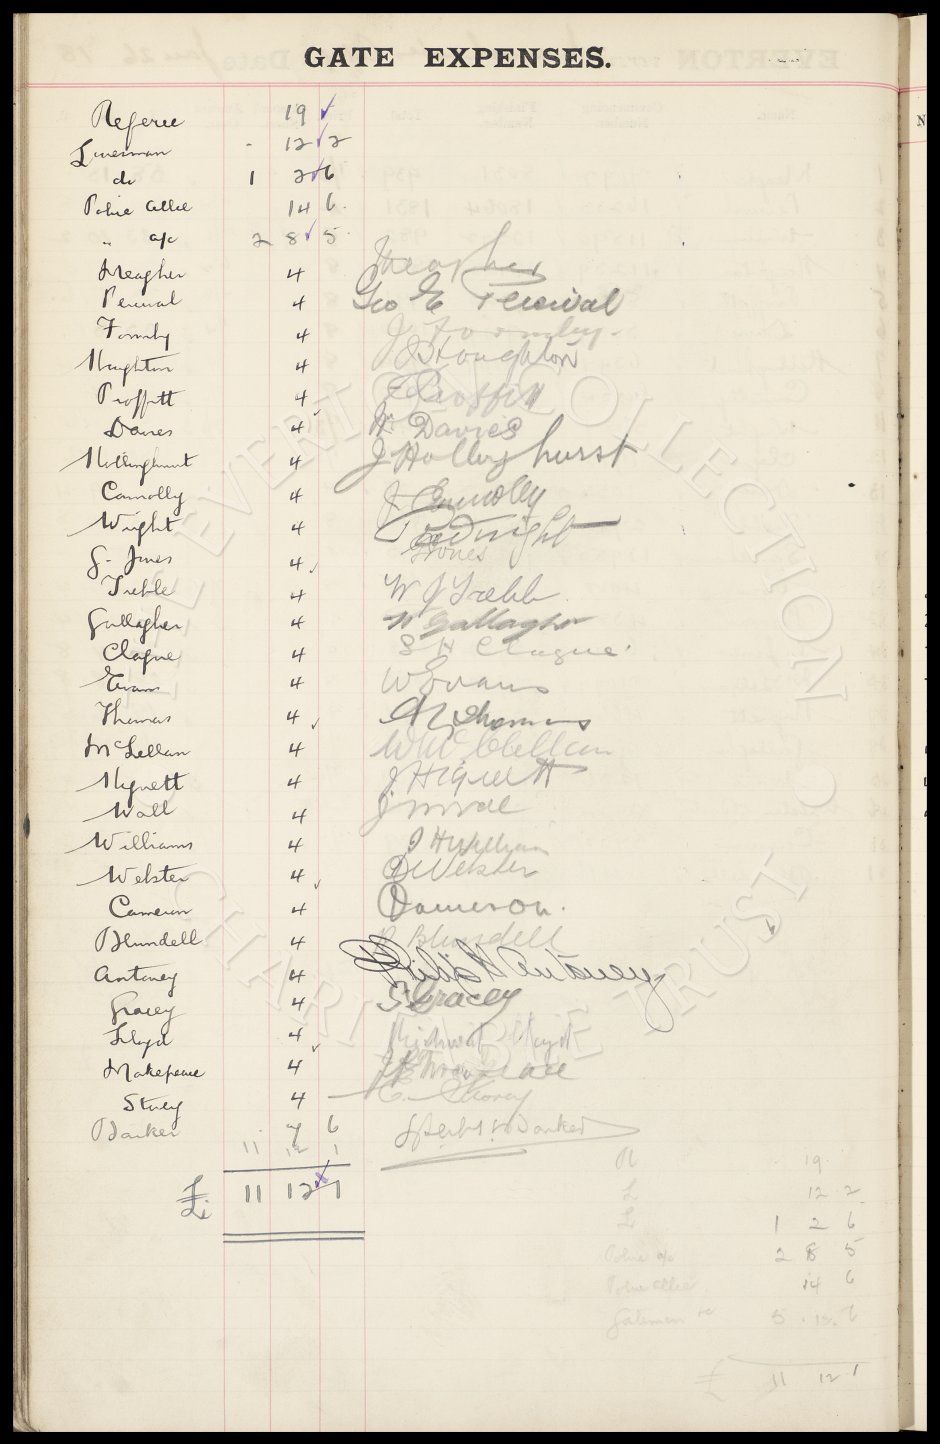 GATE EXPENSES.
Referee 19
Linesman - 12 2
do 1 2 6
Police Allce 14 6
" a/c 2 8 5
Meagher 4 Meagher
Percival 4 Geo E Percival
Formby 4 J Formby
Houghton 4 Houghton
Proffitt 4 Proffitt
Davies 4 Davies
Hollinghurst 4 J Hollinghurst
Connolly 4 J Connolly
Wright 4 Wright
G. Jones 4 Jones
Trebble 4 W J Trebble
Gallagher 4 Gallagher
Clague 4 S H Clague
Evans 4 W Evans
Thomas 4 Thomas
McLellan 4 McClellan
Hignett 4 J Hignett
Wall 4
Williams 4
Webster 4 Webster
Cameron 4 Cameron
Blundell 4 Blundell
Antoney 4 Philip H Antoney
Gracey 4 Gracey
Lloyd 4 Lloyd
Makepeace 4
Storey 4 Storey
Barker 7 6 Barker
11 12 1
£ 11 12 1
R 19
L 12 2
L 1 2 6
Police a/c 2 8 5
Police Allce 14 6
Gatemen &c 5 15 6
£ 11 12 1
THE EVERTON COLLECTION
CHARITABLE TRUST ©